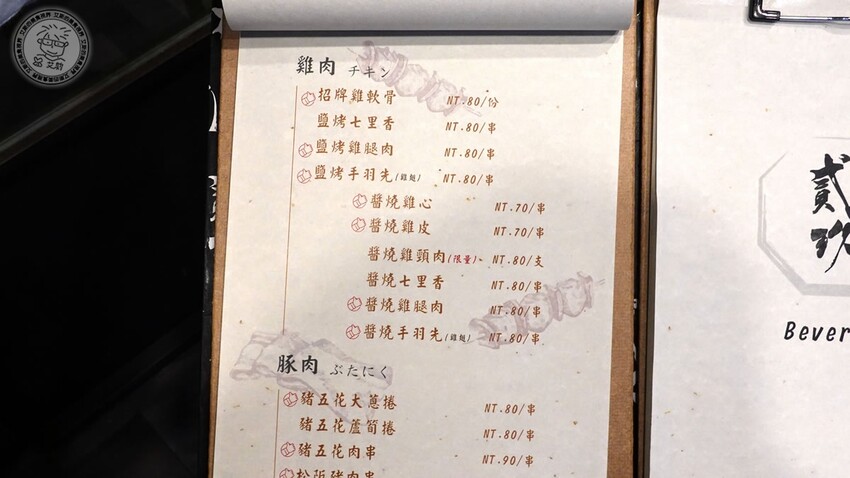 雞肉 チキン
招牌雞軟骨 NT.80/份
鹽烤七里香 NT.80/串
鹽烤雞腿肉 NT.80/串
鹽烤手羽先(雞翅) NT.80/串
醬燒雞心 NT.70/串
醬燒雞皮 NT.70/串
醬燒雞頸肉(限量) NT.80/支
醬燒七里香 NT.80/串
醬燒雞腿肉 NT.80/串
醬燒手羽先(雞翅) NT.80/串
豚肉 ぶたにく
豬五花大蔥捲 NT.80/串
豬五花蘆筍捲 NT.80/串
豬五花肉串 NT.90/串
松阪豬肉串
貳
Bever